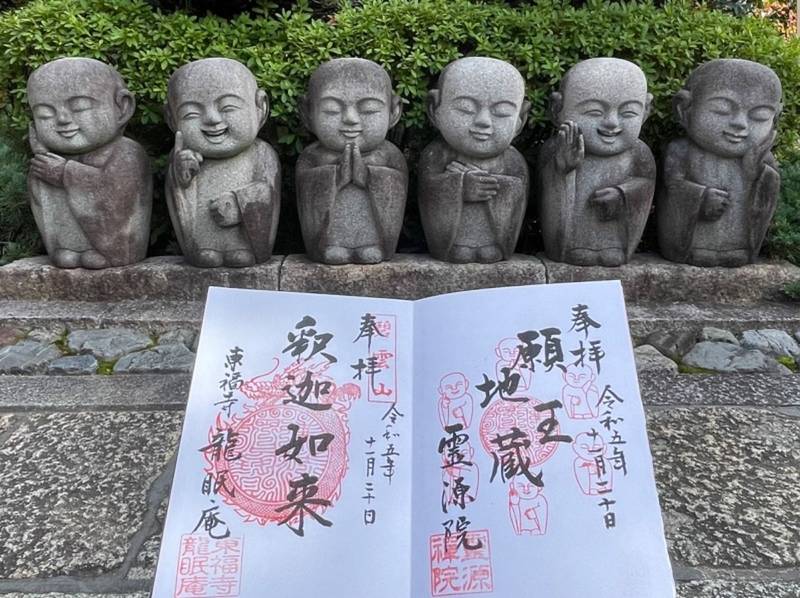 奉拝
令和五年
十一月二十日
願王
地蔵
霊源院
霊源
禅院
奉拝
雲山
令和五年
十一月二十日
釈迦如来
東福寺
龍眠庵
東福寺
龍眠庵